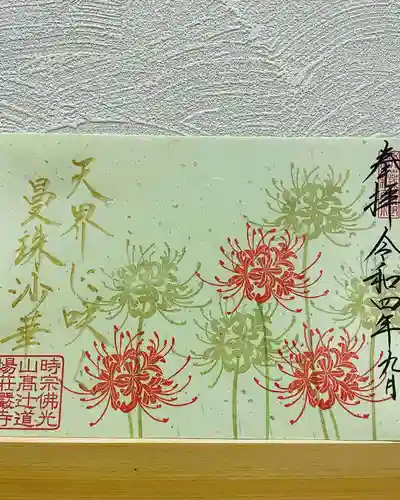 奉拝
令和四年九月
天界に咲く
曼珠沙華
時宗佛光
山髙辻道
場荘嚴寺